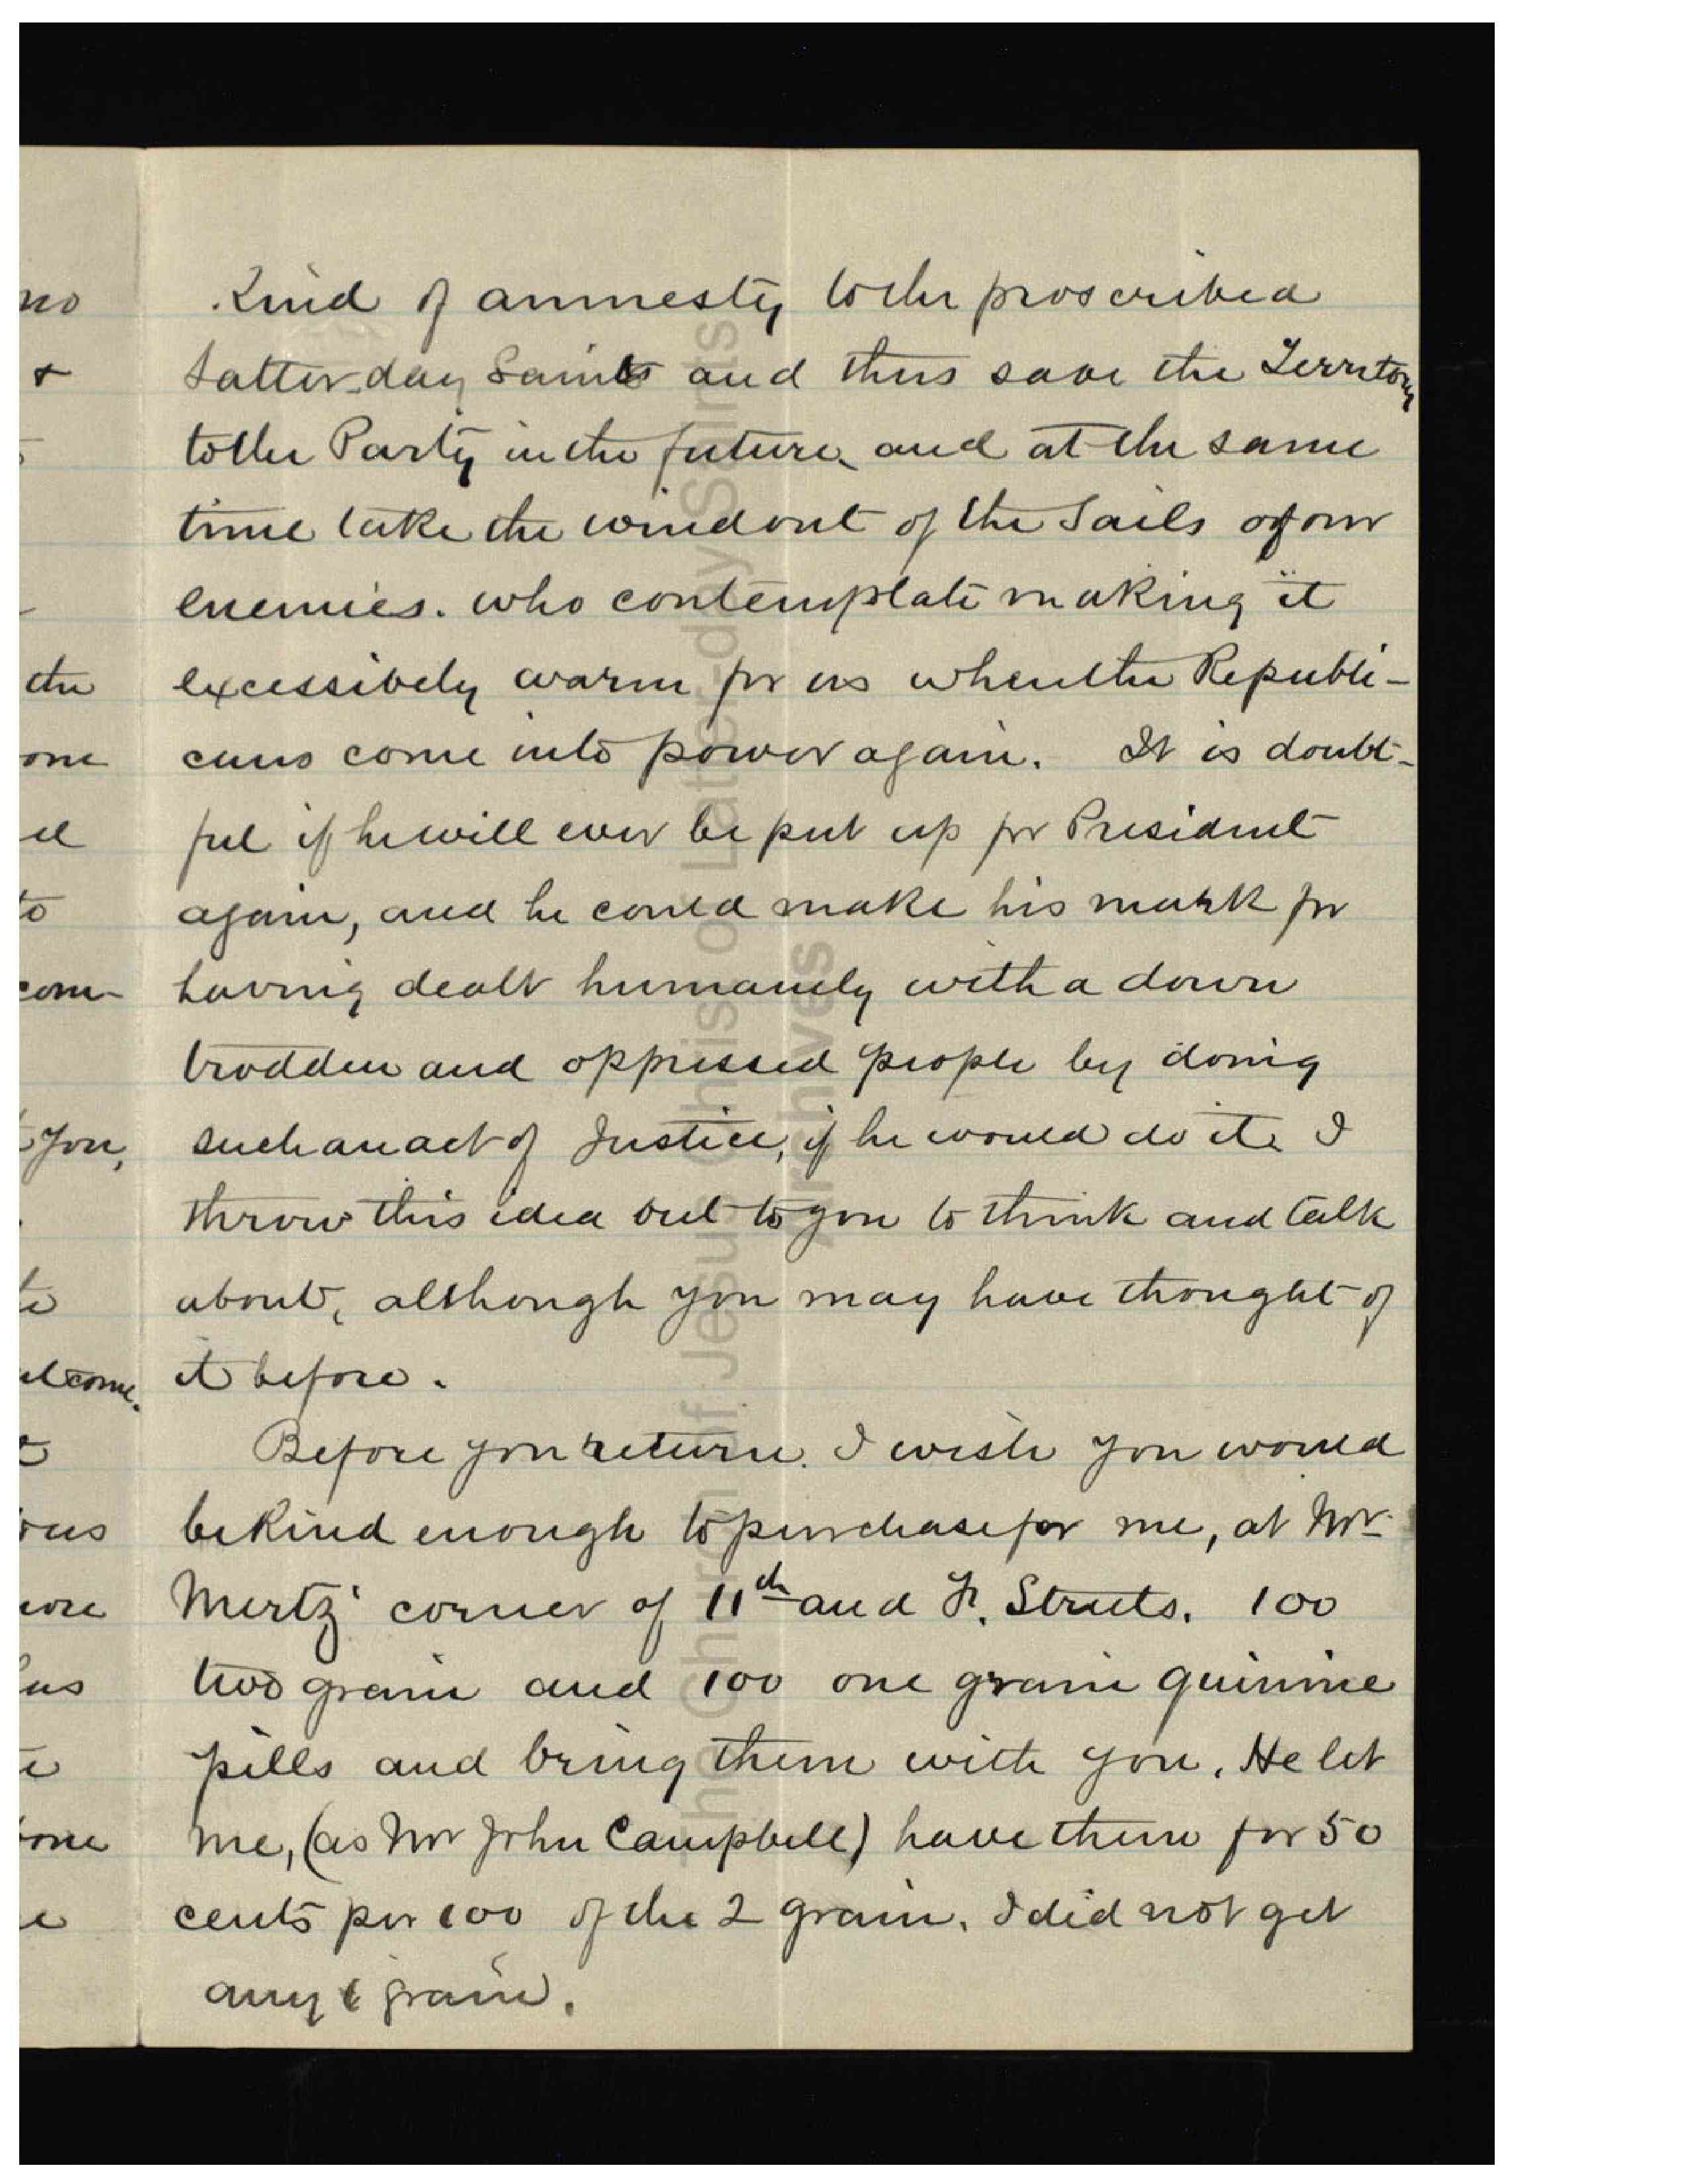 Kind of amnesty to the proscribed
Latter-day Saints and thus save the Territory
to the Party in the future, and at the same
time take the wind out of the Sails of our
enemies. who contemplate making it
excessively warm for us when the Republi-
cans come into power again. It is doubt-
ful if he will ever be put up for President
again, and he could make his mark for
having dealt humanely with a down
trodden and oppressed people by doing
such an act of Justice, if he would do it. I
throw this idea out to you to think and talk
about, although you may have thought of
it before.
Before you return. I wish you would
be kind enough to purchase for me, at Mr.
Mertz' corner of 11th and F. Streets. 100
two grain and 100 one grain quinine
pills and bring them with you. He let
me, (as Mr John Campbell) have them for 50
cents per 100 of the 2 grain. I did not get
any 1 grain.
no
&
the
one
ed
to
com-
you,
come.
ous
ore
has
one
The Church of Jesus Christ of Latter-day Saints
Archives